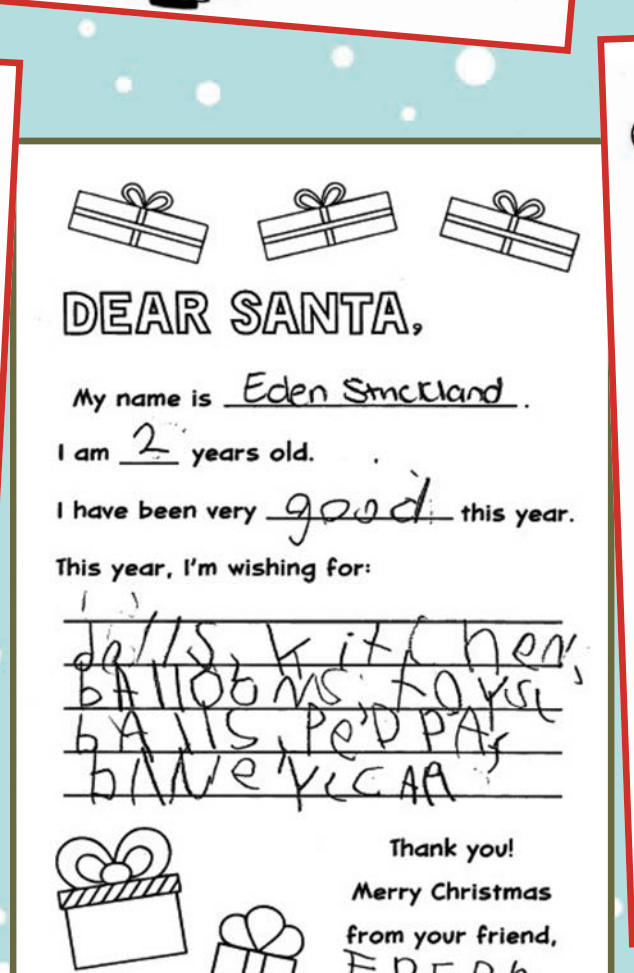 DEAR SANTA,
My name is Eden Strickland.
I am 2 years old.
I have been very good this year.
This year, I'm wishing for:
dolls, kitchen,
bAlloons, toys,
bAlls, PePPA,
Thank you!
Merry Christmas
from your friend,